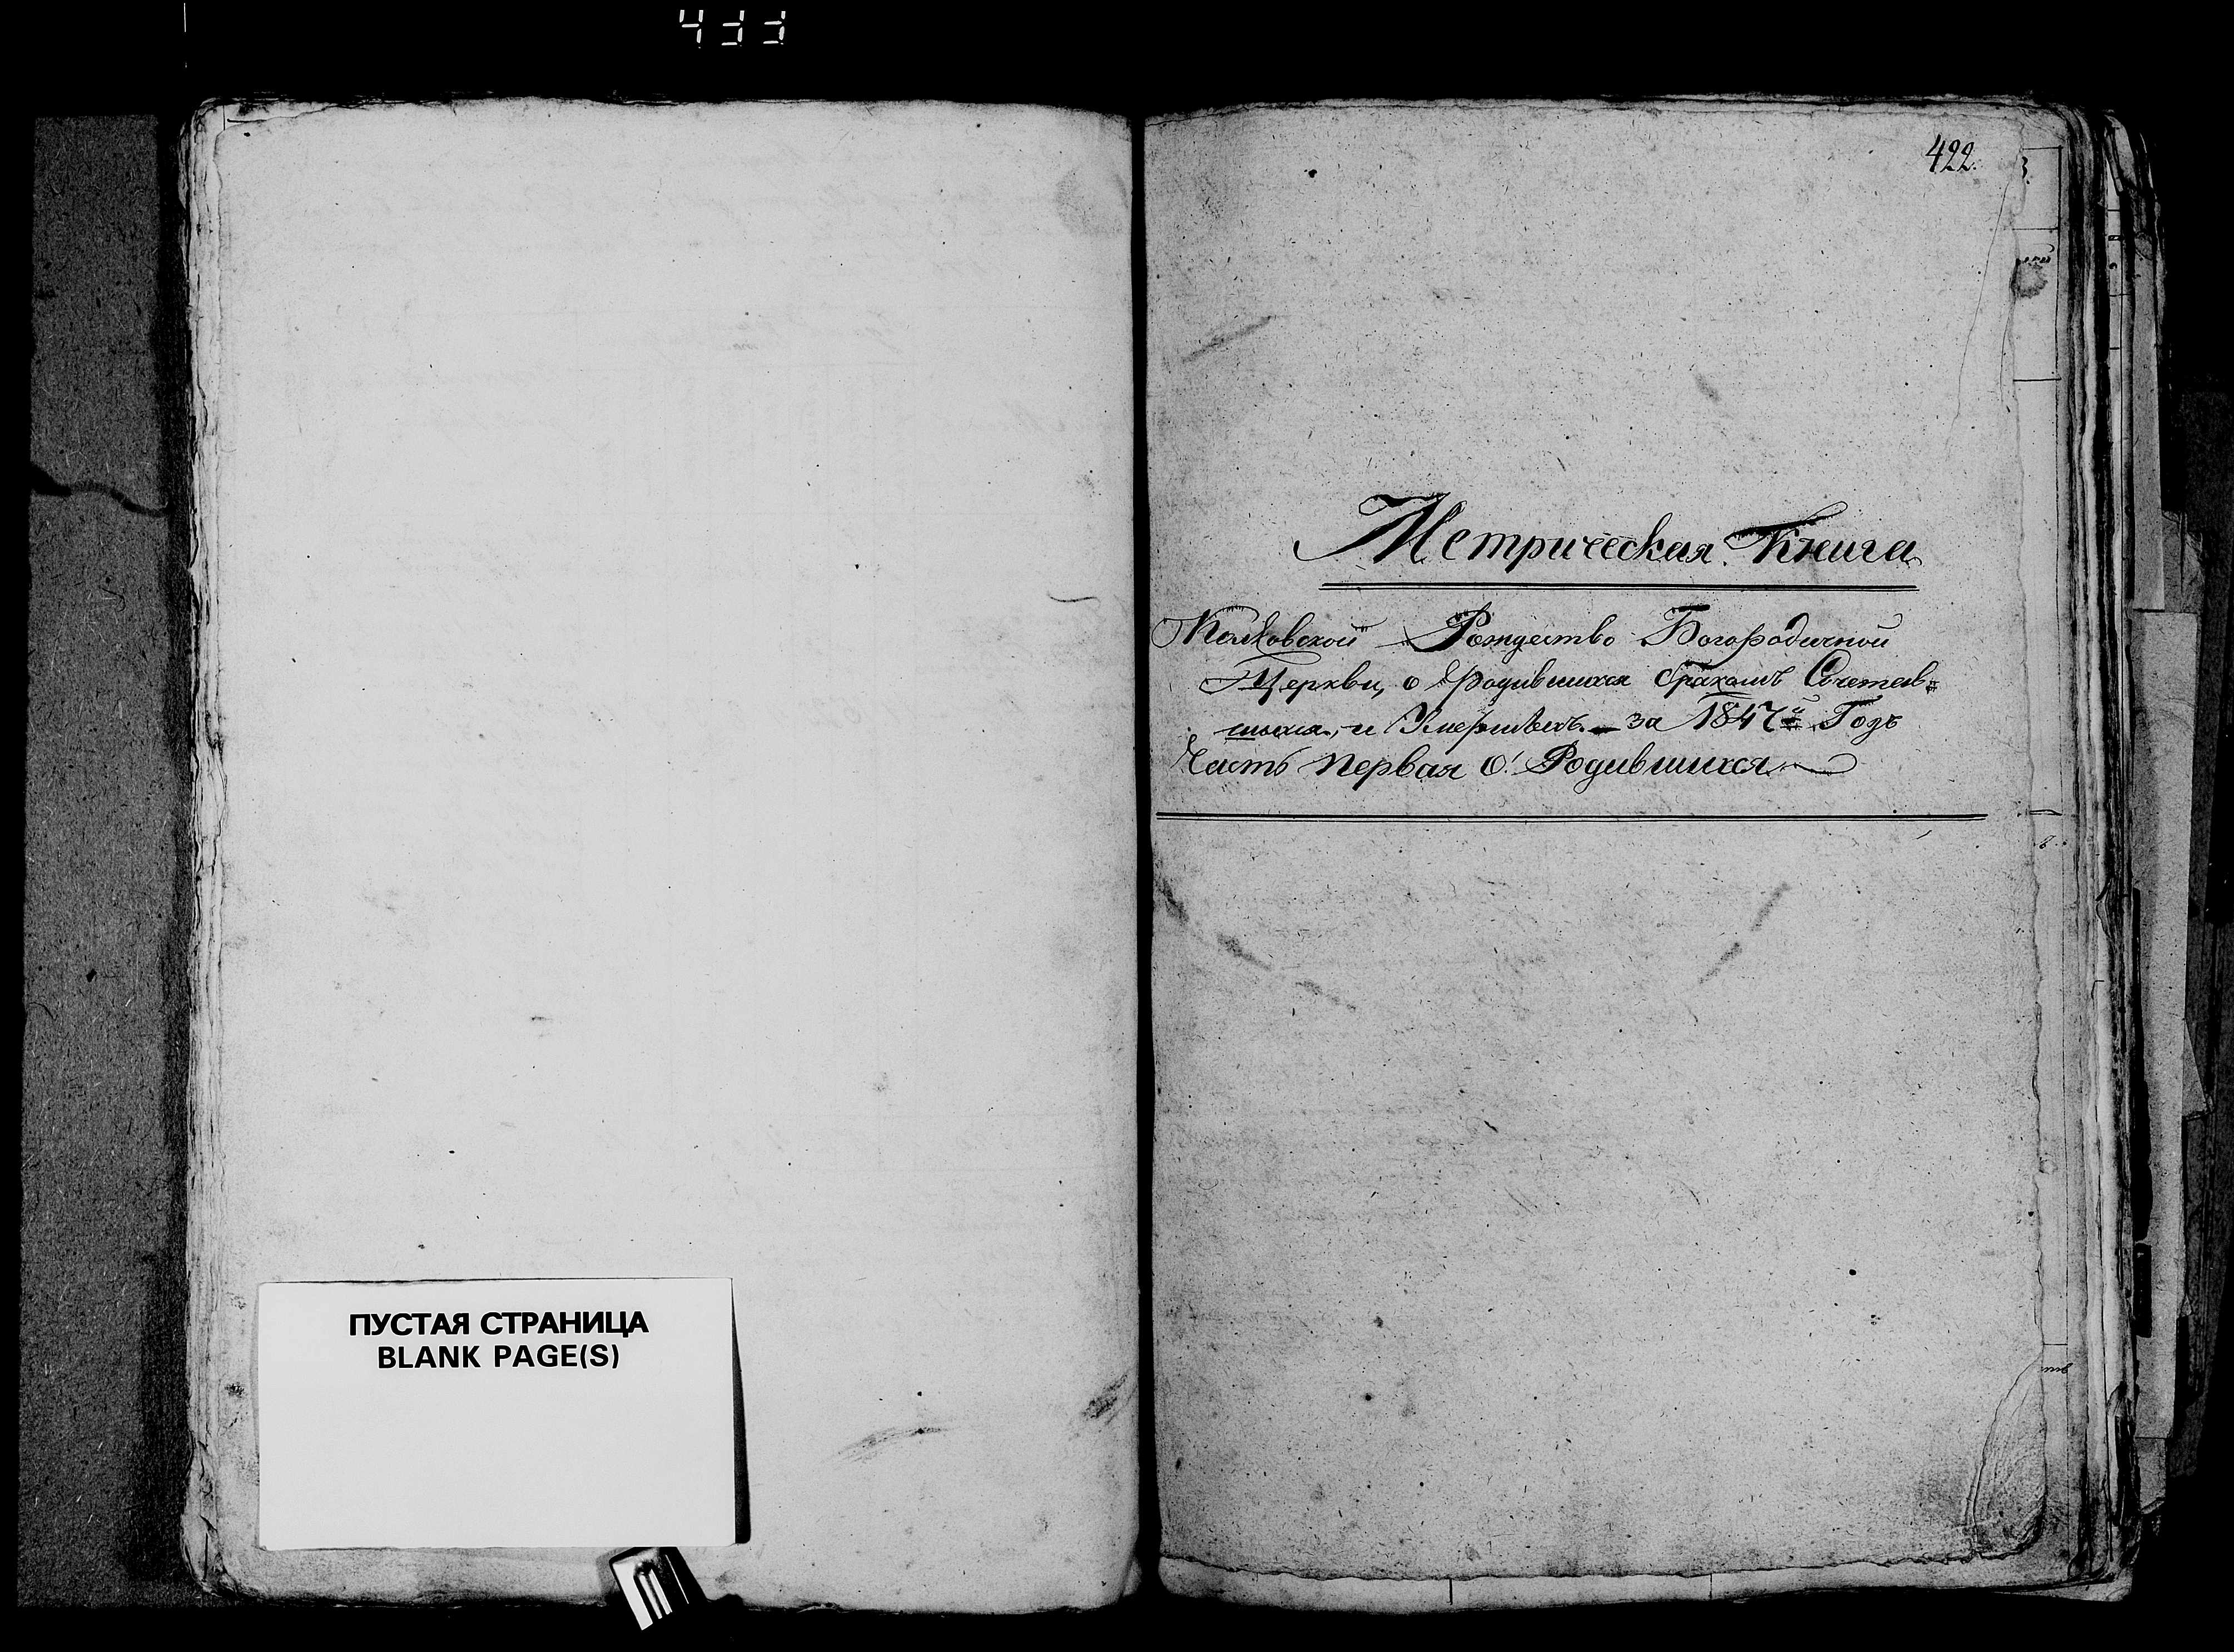 433
422.
Метрическая Книга
Рождество Богородичной
Церкви, о Родившихся бракомъ Сочетав=
шихся, и Умершихъ. за 1847й Годъ
Часть Первая О! Родившихся
ПУСТАЯ СТРАНИЦА
BLANK PAGE(S)